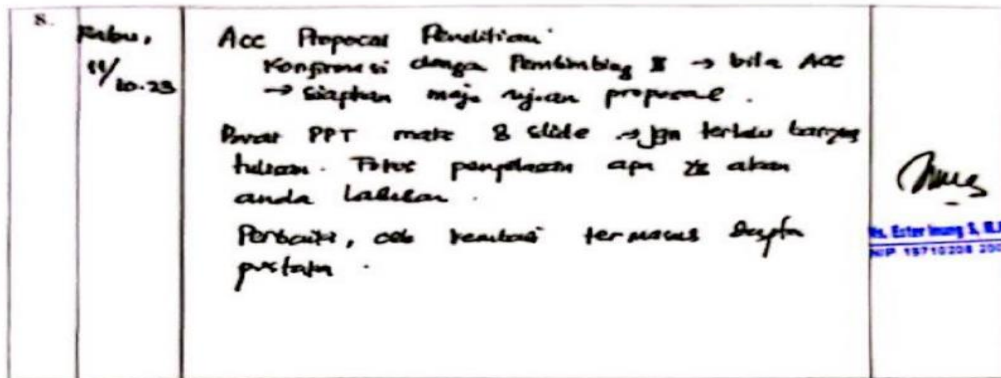 8.
Rabu,
11/10-23
Acc Proposal Penelitian.
Konfirmasi dengan Pembimbing II → bila Acc
→ siapkan maju ujian proposal.
Buat PPT max 8 slide → jgn terlalu banyak
tulisan. Fokus penjelasan apa yg akan
anda lakukan.
Perbaiki, cek kembali termasuk daftar
pustaka.
Ns. Ester Inung S, M.
NIP 19710208 200